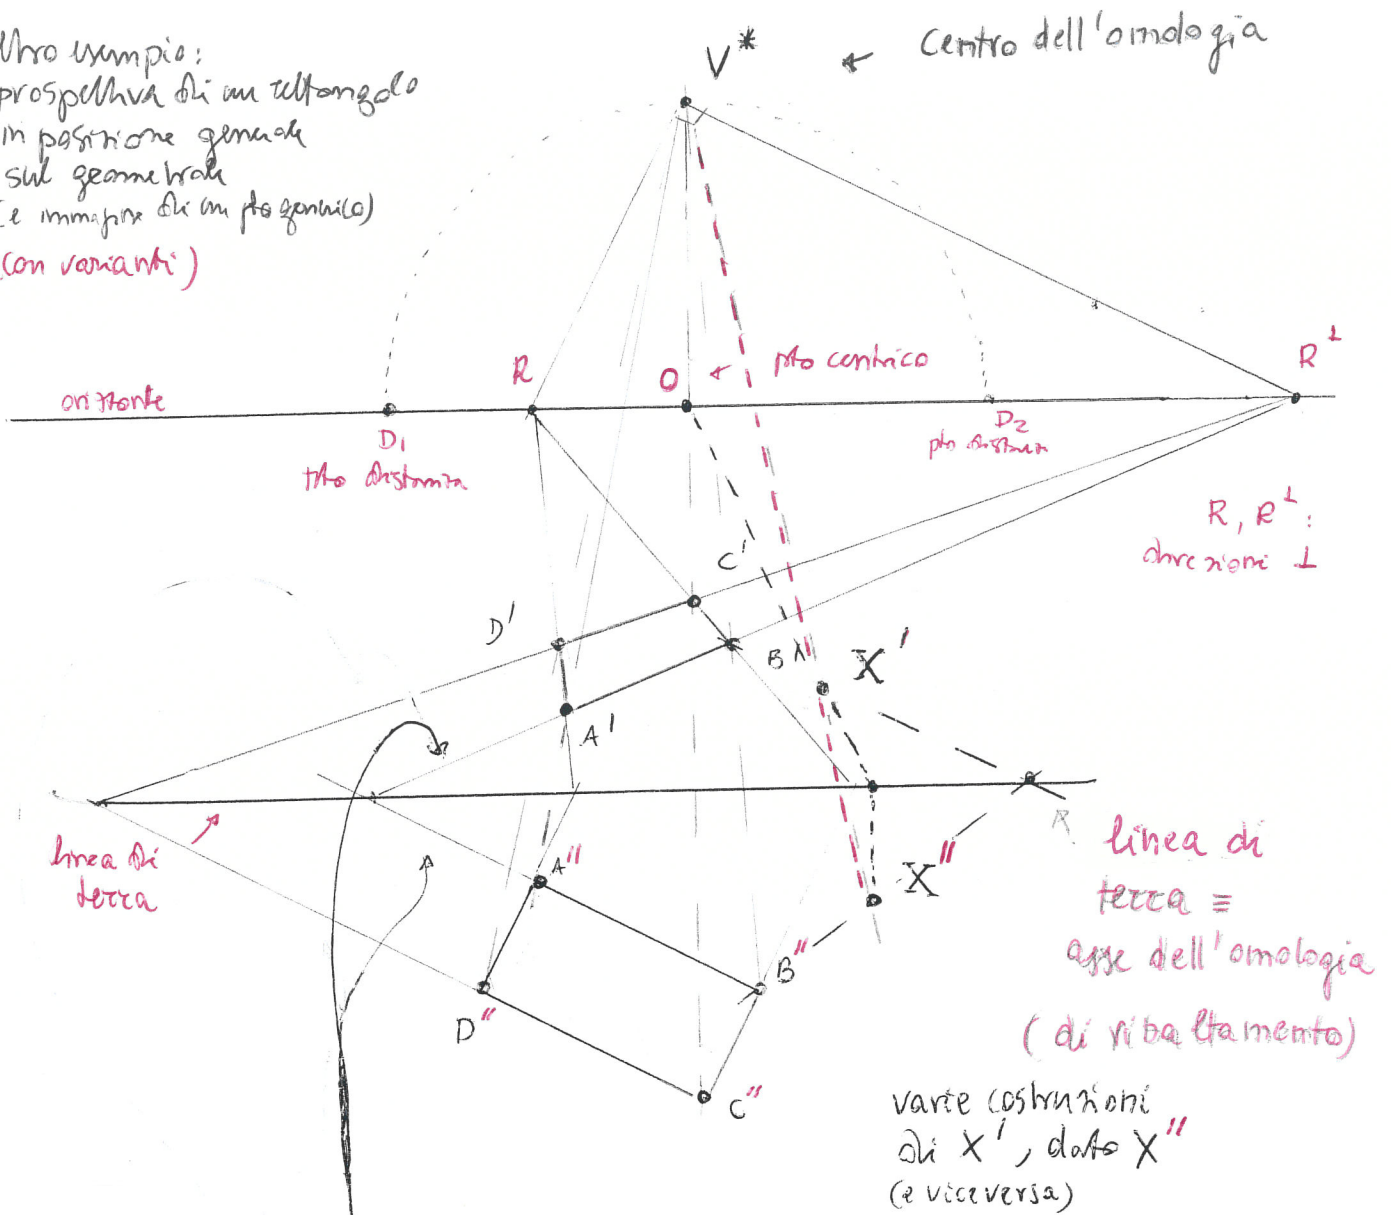 ltro esempio:
prospettiva di un rettangolo
in posizione generale
sul geometrale
(e immagine di un pto generico)
(con varianti)
V*
← centro dell'omologia
R
O
← pto centrico
R⊥
orizzonte
D1
pto distanza
D2
pto distanza
R, R⊥:
direzioni ⊥
C'
D'
B
X'
A'
linea di
terra
A"
X"
B"
D"
C"
linea di
terra ≡
asse dell'omologia
(di ribaltamento)
varie costruzioni
di X', dato X"
(e viceversa)